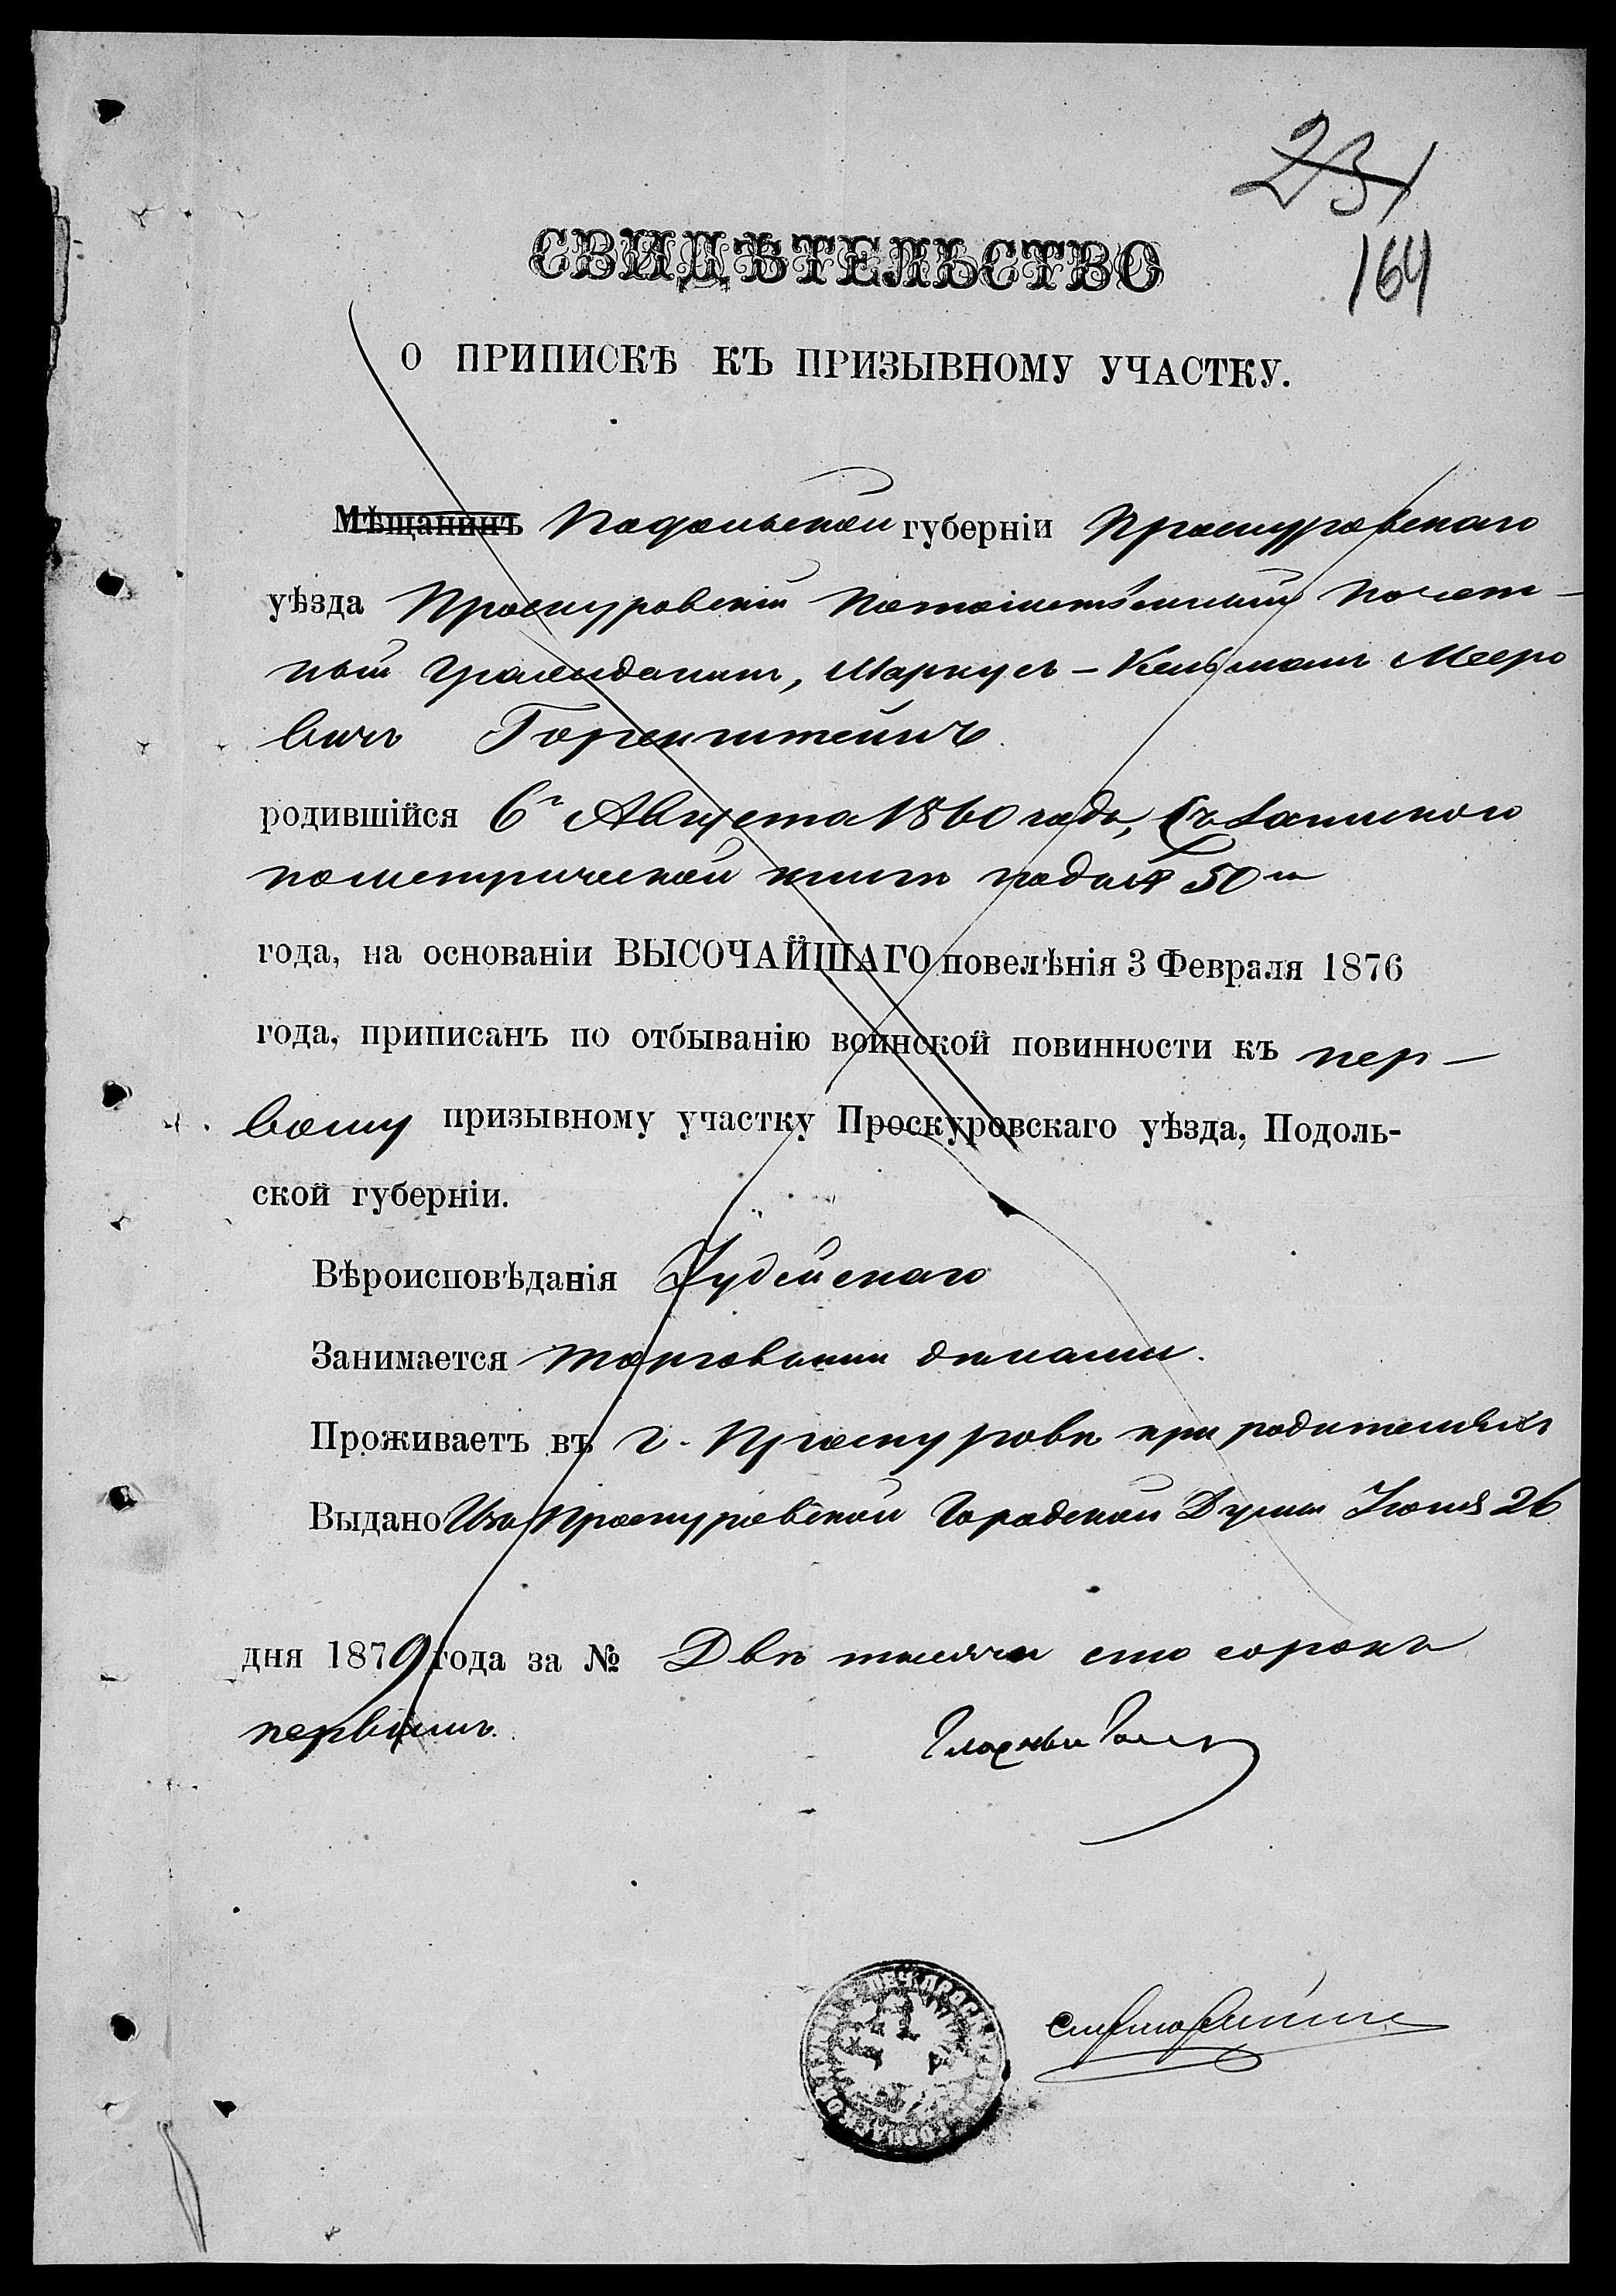 231
164
СВИДѢТЕЛЬСТВО
О ПРИПИСКѢ КЪ ПРИЗЫВНОМУ УЧАСТКУ.
Мѣщанинъ Подольской губерніи Проскуровскаго
уѣзда Проскуровскій Потомственный Почет-
ный Гражданинъ, Маркусъ-Кельманъ Мееро
вичъ Горенштейнъ
родившійся 6го Августа 1860 года,
по метрической книги подъ № 50м
года, на основаніи ВЫСОЧАЙШАГО повелѣнія 3 Февраля 1876
года, приписанъ по отбыванію воинской повинности къ пер-
вому призывному участку Проскуровскаго уѣзда, Подоль-
ской губерніи.
Вѣроисповѣданія Іудейскаго
Занимается торговыми дѣлами.
Проживаетъ въ г. Проскуровѣ при родителяхъ
Выдано Изъ Проскуровской Городской Думы Іюня 26
дня 1879 года за № Двѣ тысячи сто сорокъ
первымъ.